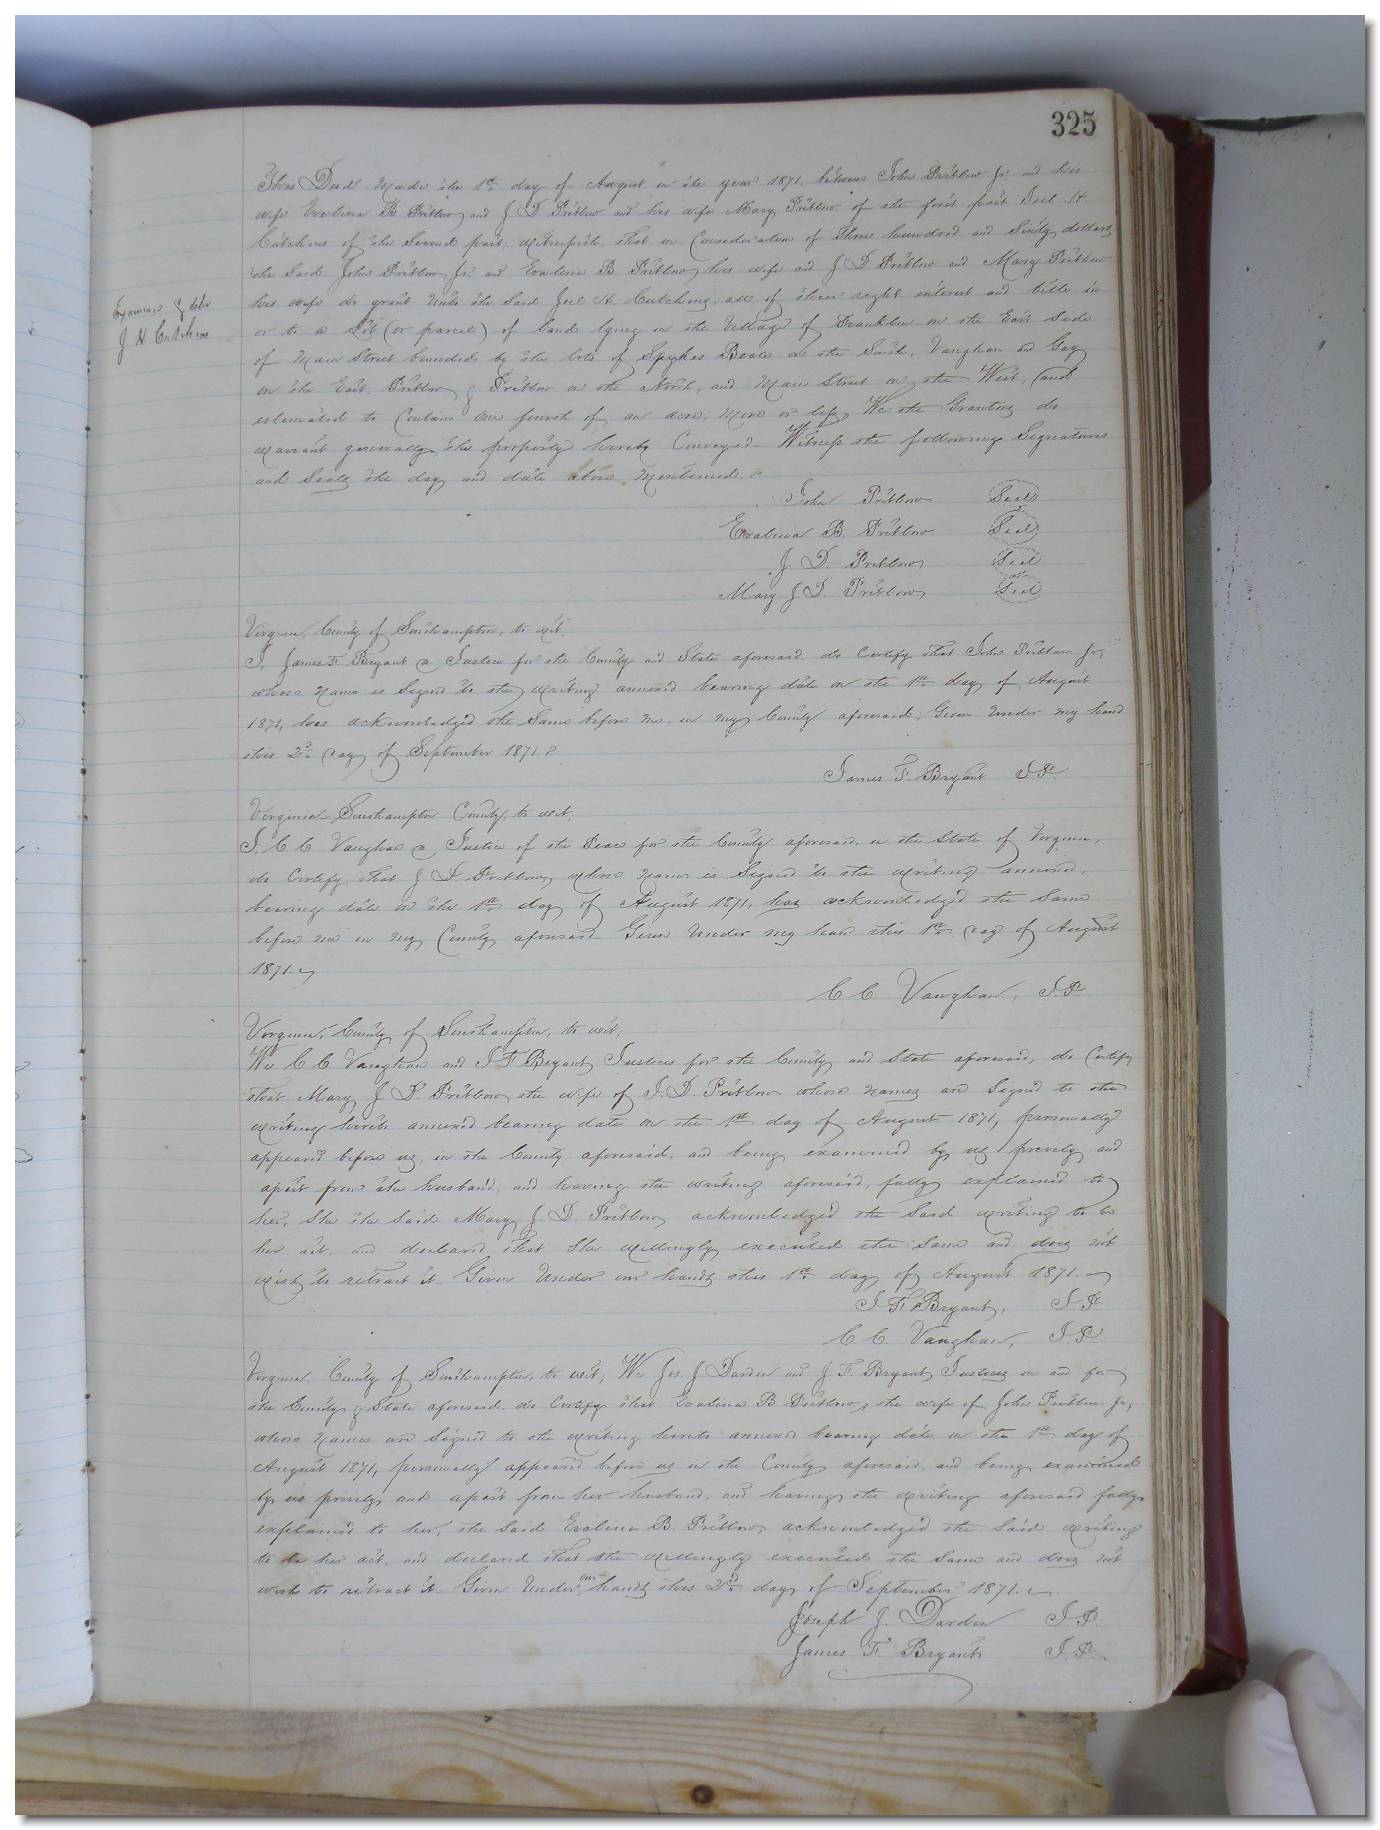 325
This Deed made the 1st day of August in the year 1871, between John Pretlow Jr. and his
wife Evalina B Pretlow, and J D Pretlow and his wife Mary Pretlow of the first part Joel H
Cutchins of the Second part; witnesseth, that in Consideration of Three hundred and Sixty dollars
the Said John Pretlow, Jr. and Evalina B Pretlow, his wife and J D Pretlow and Mary Pretlow
his wife do grant unto the Said Joel H. Cutchins, all of their right interest and title in
Examined & delv
J. H Cutchins
or to a Lot (or parcel) of land lying in the Village of Franklin on the East Side
of Main Street bounded by the lots of Spykes Beale on the South, Vaughan and Gay
on the East, Pretlow & Pretlow on the North, and Main Street on the West, (and
estimated to Contain one fourth of an acre, more or less, We the Grantors do
warrant generally the property hereby Conveyed. Witness the following Signatures
and Seals the day and date above mentioned.
John Pretlow Seal
Evalina B. Pretlow Seal
J D. Pretlow Seal
Mary J D. Pretlow Seal
Virginia, County of Southampton, to wit,
I, James F. Bryant a Justice for the County and State aforesaid, do Certify that John Pretlow Jr,
whose name is Signed to the writing annexed bearing date on the 1st day of August
1871, has acknowledged the Same before me in my County aforesaid; Given under my hand
this 2d day of September 1871.
James F. Bryant J.P.
Virginia Southampton County, to wit,
I. C. C. Vaughan a Justice of the Peace for the County aforesaid, in the State of Virginia,
do Certify that J. D. Pretlow, whose name is Signed to the writing annexed,
bearing date on the 1st day of August 1871, has acknowledged the Same
before me in my County aforesaid Given under my hand this 1st day of August
1871.
C C. Vaughan, J.P.
Virginia, County of Southampton, to wit,
We C C Vaughan and J F Bryant Justices for the County and State aforesaid, do Certify
that Mary J D Pretlow, the wife of J. D. Pretlow whose names are Signed to the
writing hereto annexed bearing date on the 1st day of August 1871, personally
appeared before us, in the County aforesaid, and being examined by us privily and
apart from the husband, and having the writing aforesaid, fully explained to
her, She the Said Mary J D. Pretlow acknowledged the Said writing to be
her act, and declared that She willingly executed the Same and does not
wish to retract it Given Under our hands this 1st day of August 1871.
J F. Bryant, J.P.
C C. Vaughan, J.P.
Virginia, County of Southampton, to wit, We Jos. J Darden and J. F. Bryant Justices in and for
the County & State aforesaid do Certify that Evalina B. Pretlow, the wife of John Pretlow Jr,
whose names are Signed to the writing hereto annexed bearing date on the 1st day of
August 1871, personally appeared before us in the County aforesaid, and being examined
by us privily and apart from her husband, and having the writing aforesaid fully
explained to her, the Said Evalina B. Pretlow acknowledged the Said writing
to be her act, and declared that She willingly executed the Same and does not
wish to retract it Given Under our hands this 2d day of September 1871.
Joseph J. Darden J.P.
James F. Bryant J.P.